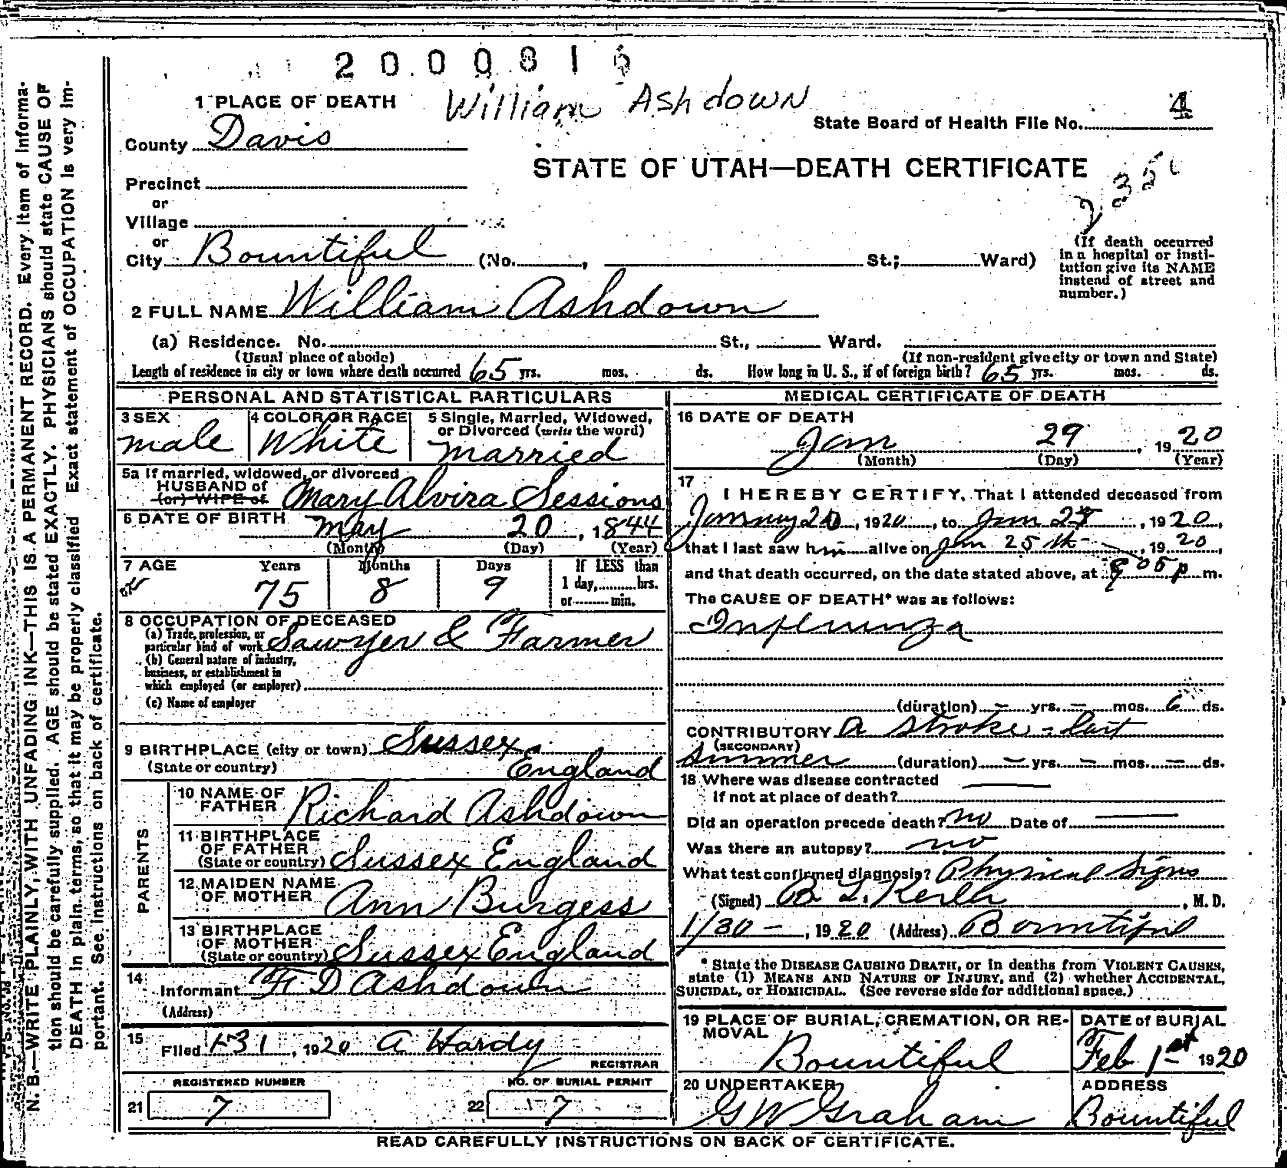 2000816
1 PLACE OF DEATH William Ashdown
State Board of Health File No. 4
County Davis
STATE OF UTAH—DEATH CERTIFICATE
235
Precinct
or
Village
or
City Bountiful (No. , St.; Ward)
(If death occurred
in a hospital or insti-
tution give its NAME
instead of street and
number.)
2 FULL NAME William Ashdown
(a) Residence. No. St., Ward.
(Usual place of abode) (If non-resident give city or town and State)
Length of residence in city or town where death occurred 65 yrs. mos. ds. How long in U. S., if of foreign birth? 65 yrs. mos. ds.
PERSONAL AND STATISTICAL PARTICULARS
3 SEX
male
4 COLOR OR RACE
White
5 Single, Married, Widowed,
or Divorced (write the word)
Married
5a If married, widowed, or divorced
HUSBAND of
(or) WIFE of Mary Alvira Sessions
6 DATE OF BIRTH May 20, 1844
(Month) (Day) (Year)
7 AGE Years Months Days If LESS than
1 day, hrs.
or min.
75 8 9
8 OCCUPATION OF DECEASED
(a) Trade, profession, or
particular kind of work Sawyer & Farmer
(b) General nature of industry,
business, or establishment in
which employed (or employer)
(c) Name of employer
9 BIRTHPLACE (city or town) Sussex
(State or country) England
PARENTS
10 NAME OF
FATHER Richard Ashdown
11 BIRTHPLACE
OF FATHER
(State or country) Sussex England
12 MAIDEN NAME
OF MOTHER Ann Burgess
13 BIRTHPLACE
OF MOTHER
(State or country) Sussex England
14 Informant F D Ashdown
(Address)
15 Filed 1-31, 1920 A Hardy
REGISTRAR
REGISTERED NUMBER
21 7
NO. OF BURIAL PERMIT
22 7
MEDICAL CERTIFICATE OF DEATH
16 DATE OF DEATH
Jan 29 1920
(Month) (Day) (Year)
17 I HEREBY CERTIFY, That I attended deceased from
January 20, 1920, to Jan 28, 1920,
that I last saw him alive on Jan 25th, 1920,
and that death occurred, on the date stated above, at 9 05 p m.
The CAUSE OF DEATH* was as follows:
Influenza
(duration) — yrs. — mos. 6 ds.
CONTRIBUTORY A stroke - last
(SECONDARY)
summer (duration) — yrs. — mos. — ds.
18 Where was disease contracted
If not at place of death?
Did an operation precede death? No Date of
Was there an autopsy? no
What test confirmed diagnosis? Physical Signs
(Signed) B L , M. D.
1/30 —, 1920 (Address) Bountiful
* State the DISEASE CAUSING DEATH, or in deaths from VIOLENT CAUSES,
state (1) MEANS AND NATURE OF INJURY, and (2) whether ACCIDENTAL,
SUICIDAL, or HOMICIDAL. (See reverse side for additional space.)
19 PLACE OF BURIAL, CREMATION, OR RE-
MOVAL
Bountiful
DATE of BURIAL
Feb 1st 1920
20 UNDERTAKER
G W Graham
ADDRESS
Bountiful
READ CAREFULLY INSTRUCTIONS ON BACK OF CERTIFICATE.
N. B.—WRITE PLAINLY, WITH UNFADING INK—THIS IS A PERMANENT RECORD. Every item of informa-
tion should be carefully supplied. AGE should be stated EXACTLY. PHYSICIANS should state CAUSE OF
DEATH in plain terms, so that it may be properly classified. Exact statement of OCCUPATION is very im-
portant. See instructions on back of certificate.